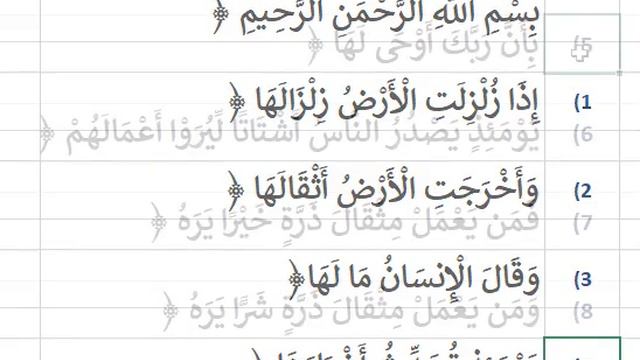 بِسْمِ اللَّهِ الرَّحْمَنِ الرَّحِيمِ ﴿
بِأَنَّ رَبَّكَ أَوْحَى لَهَا ﴿ (5
إِذَا زُلْزِلَتِ الْأَرْضُ زِلْزَالَهَا ﴿ (1
يَوْمَئِذٍ يَصْدُرُ النَّاسُ أَشْتَاتًا لِّيُرَوْا أَعْمَالَهُمْ ﴿ (6
وَأَخْرَجَتِ الْأَرْضُ أَثْقَالَهَا ﴿ (2
فَمَن يَعْمَلْ مِثْقَالَ ذَرَّةٍ خَيْرًا يَرَهُ ﴿ (7
وَقَالَ الْإِنسَانُ مَا لَهَا ﴿ (3
وَمَن يَعْمَلْ مِثْقَالَ ذَرَّةٍ شَرًا يَرَهُ ﴿ (8